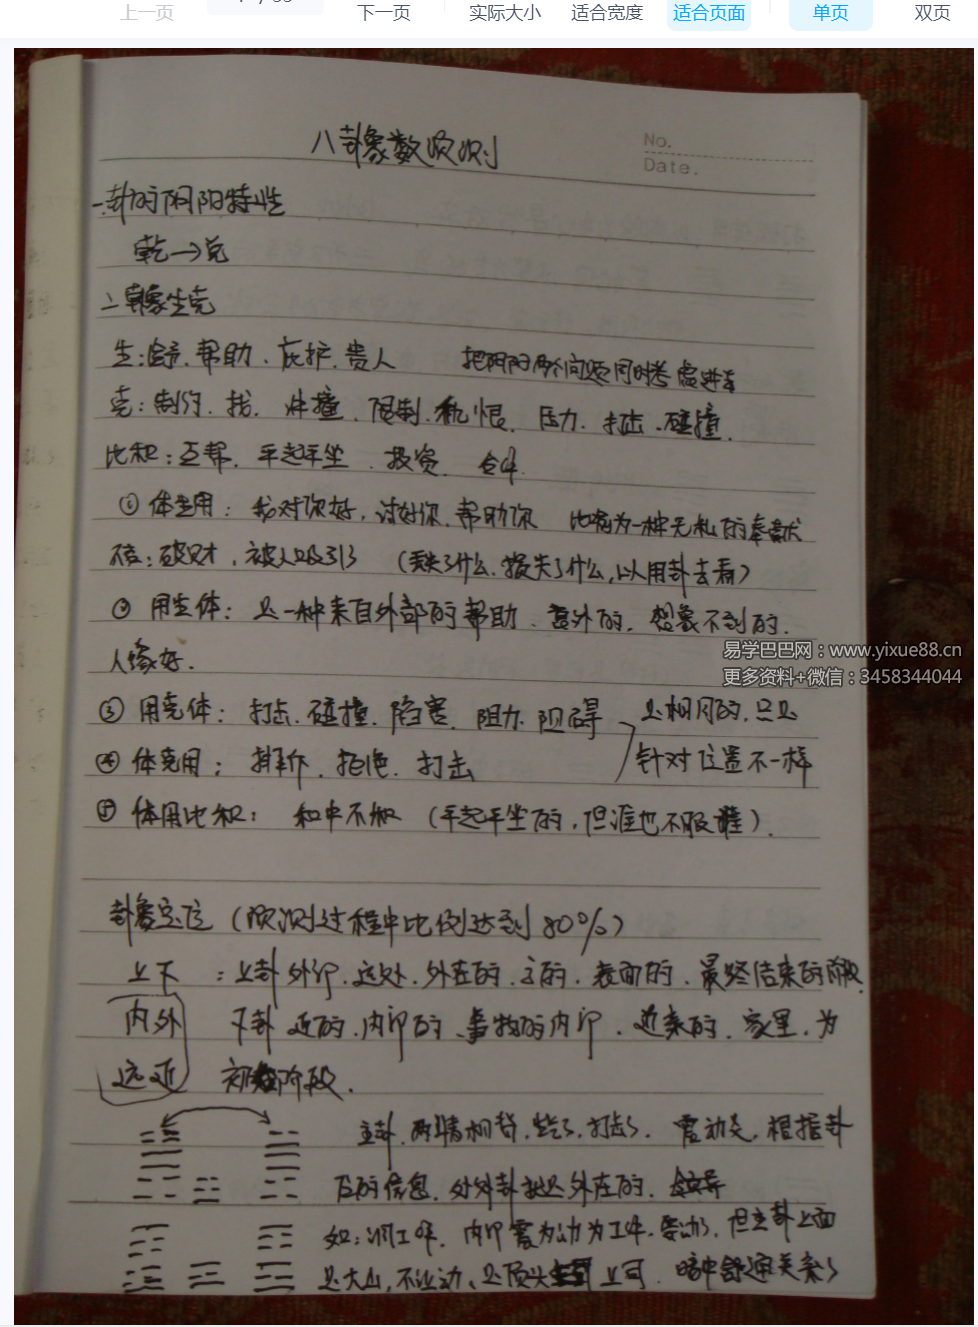 上一页 下一页 实际大小 适合宽度 适合页面 单页 双页
八卦象数预测
No.
Date.
一.卦的阴阳特性
乾→兑
二.卦象生克
生: 帮助、庇护、贵人 把阴阳两个问题同时考虑进去
克:制约、找、冲撞、限制、仇恨、压力、打击、碰撞、
比和:互帮、平起平坐、投资、合作
① 体生用:我对你好,讨好你、帮助你 比喻为一种无私的奉献
破财,被人吸引 (丢失了什么、损失了什么,以用卦去看)
② 用生体:是一种来自外部的帮助、意外的、想象不到的.
人缘好.
易学巴巴网:www.yixue88.cn
更多资料+微信:3458344044
③ 用克体:打击、碰撞、陷害、阻力、阻碍 是相同的,只是
④ 体克用:排斥、拒绝、打击 针对位置不一样
⑤ 体用比和:和中不和 (平起平坐的,但谁也不服谁).
卦象定位 (预测过程中比例达到80%)
上下 :上卦外卬、远处、外在的、主的、表面的、最终结束的阶段.
内外 下卦 近的、内卬的、事物的内卬、近来的、家里、为
远近 初始阶段.
主卦、两情相背、 打击了、震动类,根据卦
的信息,外卦 是外在的、
如:测工作,内卬震为动为工作、要动了,但主卦上面
是大山,不让动、是顶头 上司、暗中舒通关系了